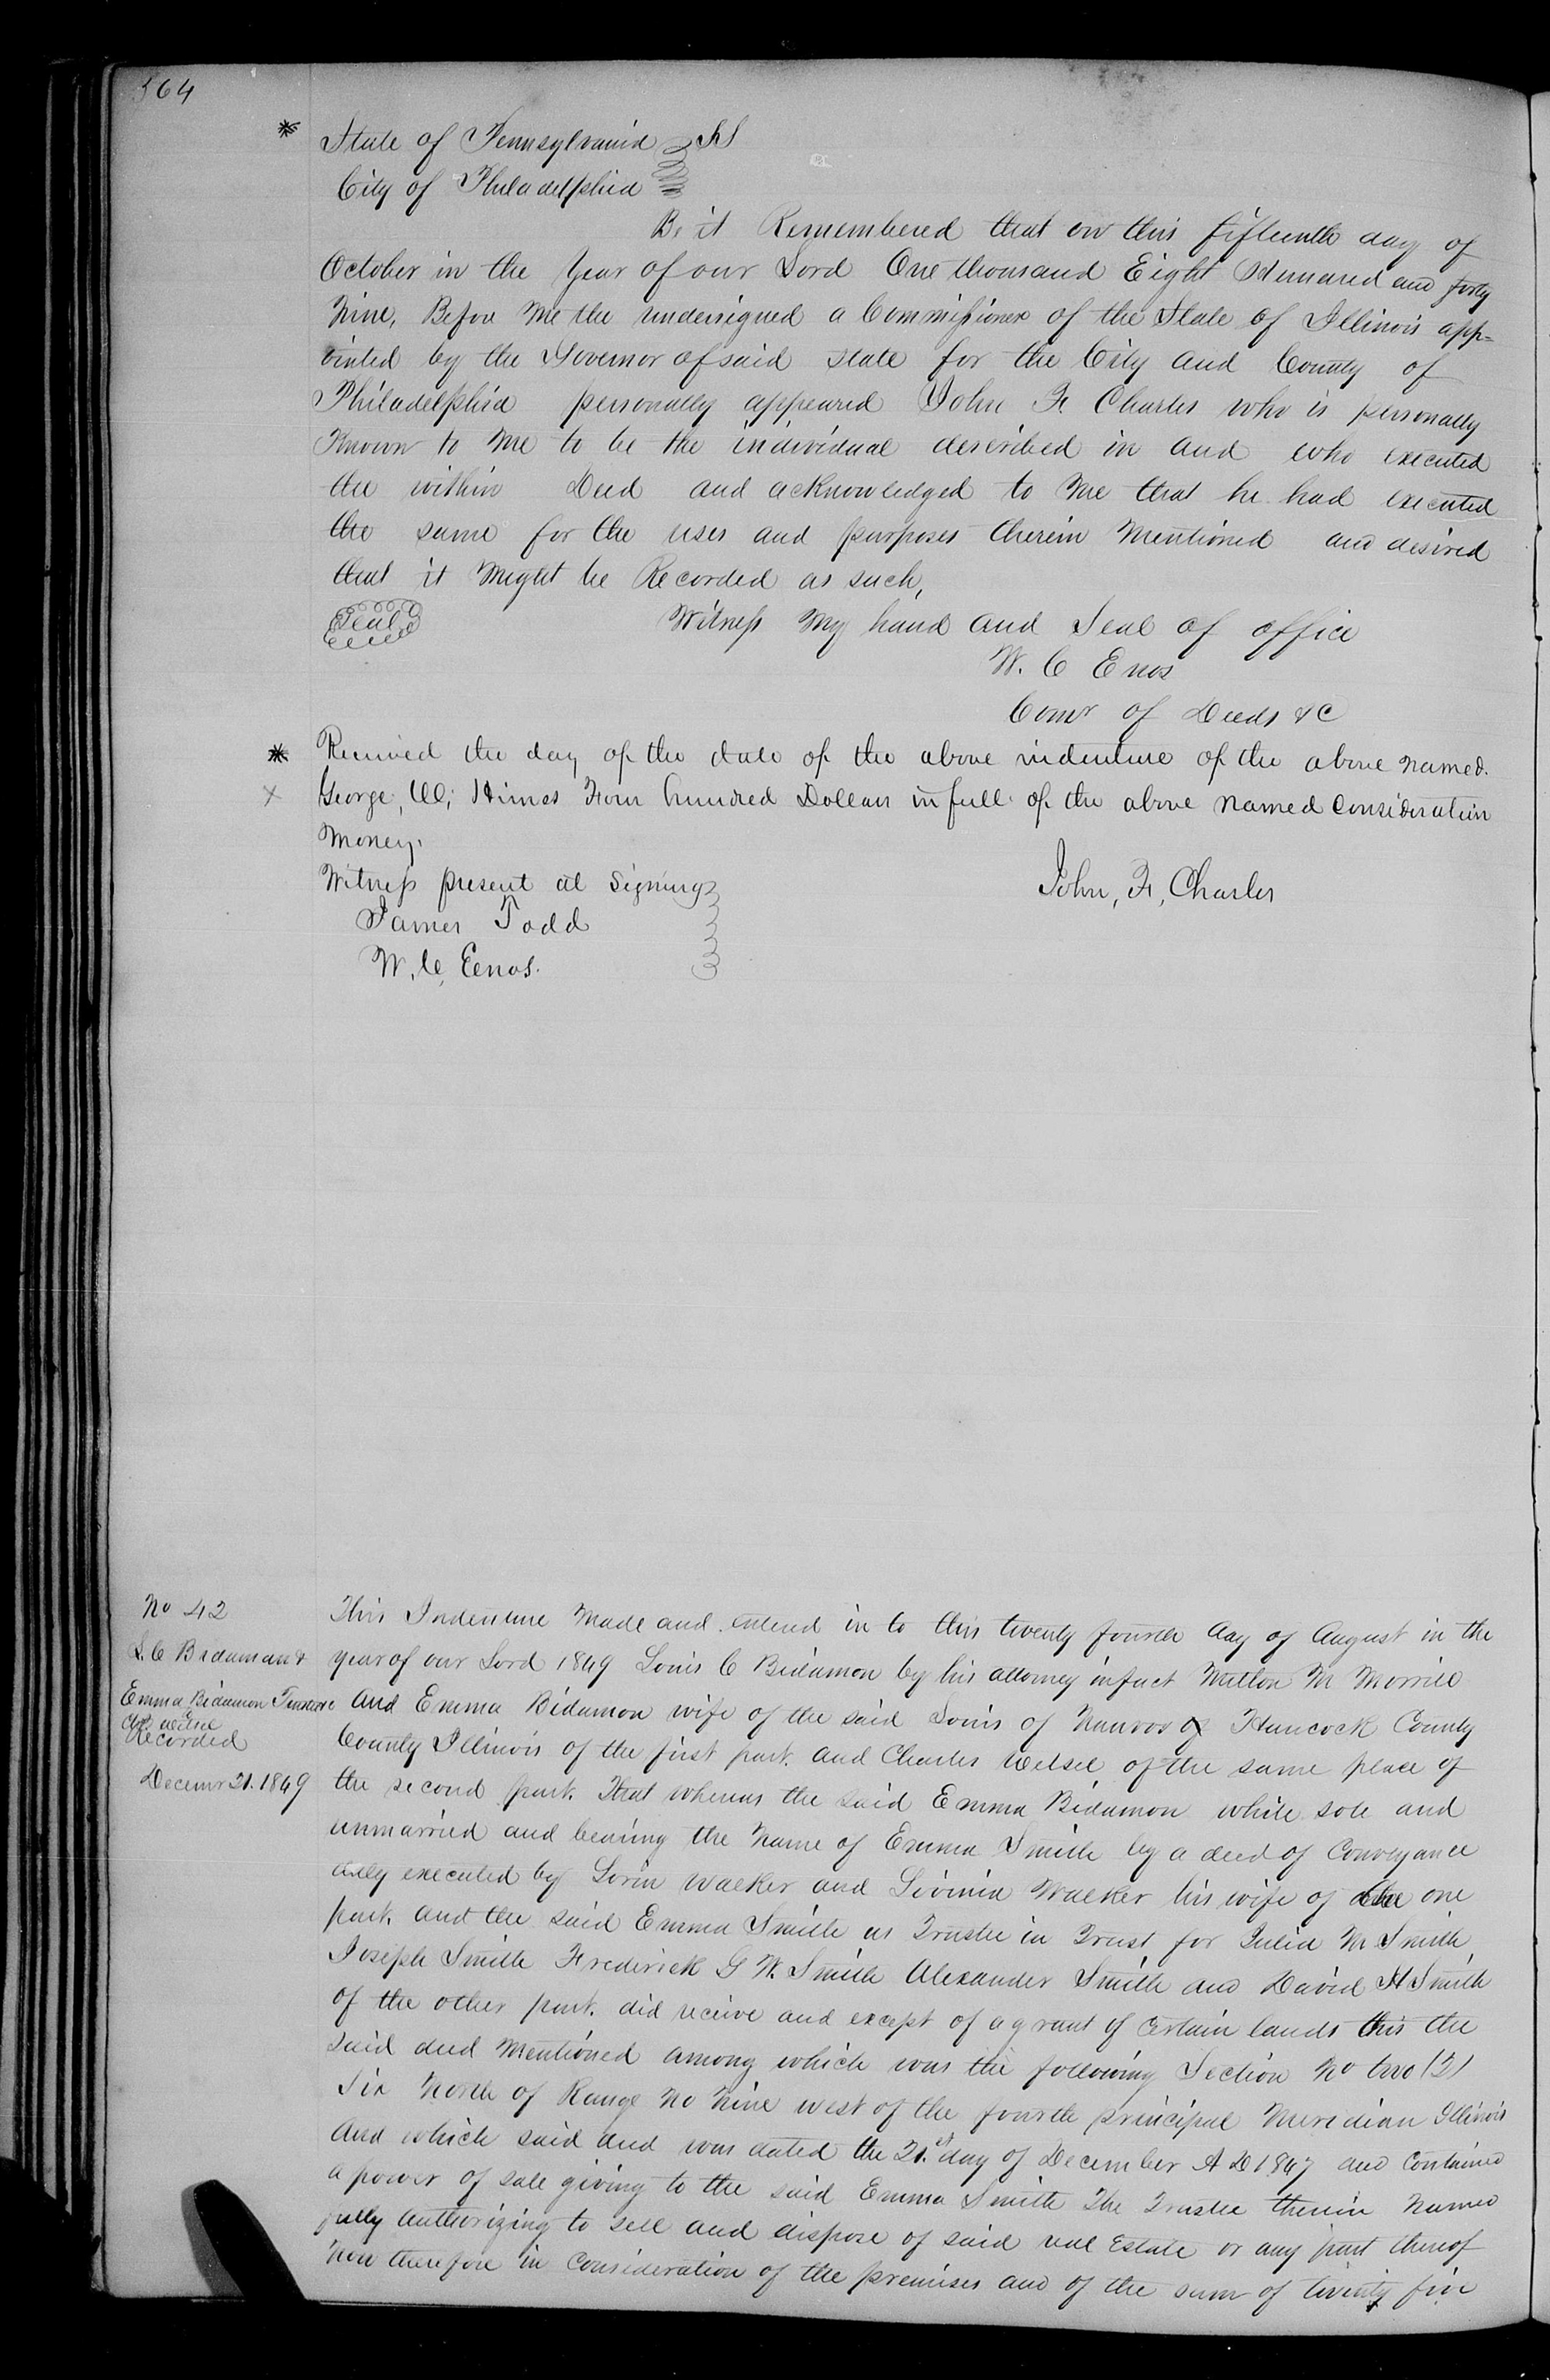 564
* State of Pennsylvania } SS
City of Philadelphia }
Be it Remembered that on this fifteenth day of
October in the Year of our Lord One thousand Eight Hundred and forty
Nine, Before me the undersigned a Commissioner of the State of Illinois app=
ointed by the Governor of said state for the City and County of
Philadelphia personally appeared John F. Charles who is personally
Known to me to be the individual described in and who executed
the within Deed and acknowledged to me that he had executed
the same for the uses and purposes therein Mentioned and desired
that it Might be Recorded as such,
Seal Witness My hand and Seal of office
W. C Enos
Comr of Deeds &C
* Received the day of the date of the above indenture of the above named.
x George, W, Himes Four hundred Dollars in full of the above named Consideration
Money.
Witness present at Signing
John, F, Charles
James Todd
W, C, Eenos.
No 42
L. C Bidaman &
Emma Bidamon Trustee
To
Chs Wetsel
Recorded
Decemr 21. 1849
This Indenture Made and entered in to this twenty fourth day of August in the
year of our Lord 1849 Louis C Bidamon by his attorney in fact Milton M Morrill
And Emma Bidamon wife of the said Louis of Nauvoo of Hancock County
County Illinois of the first part. and Charles Wetsel of the same place of
the second part. That whereas the said Emma Bidamon while sole and
unmarried and bearing the Name of Emma Smith by a deed of Conveyance
duly executed by Lorin Walker and Lovinia Walker his wife of the one
part. and the said Emma Smith as Trustee in Trust for Julia M Smith,
Joseph Smith Frederick G W. Smith Alexander Smith and David H Smith
of the other part. did receive and except of a grant of Certain lands this the
said deed Mentioned among which was the following Section No two (2)
Six North of Range No Nine west of the fourth principal Meridian Illinois
And which said deed was dated the 21.st day of December A D 1847 and Contained
a power of sale giving to the said Emma Smith The Trustee therein Named
fully Authorizing to sell and dispose of said real Estate or any part thereof
Now therefore in Consideration of the premises and of the sum of twenty five